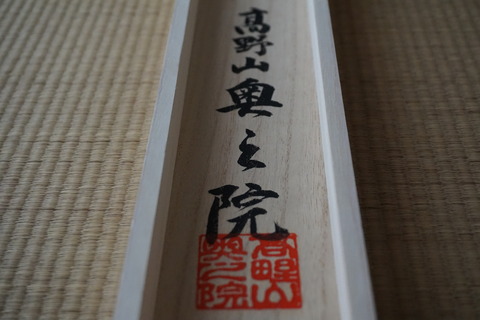 高野山奥之院
高野山
奥之院